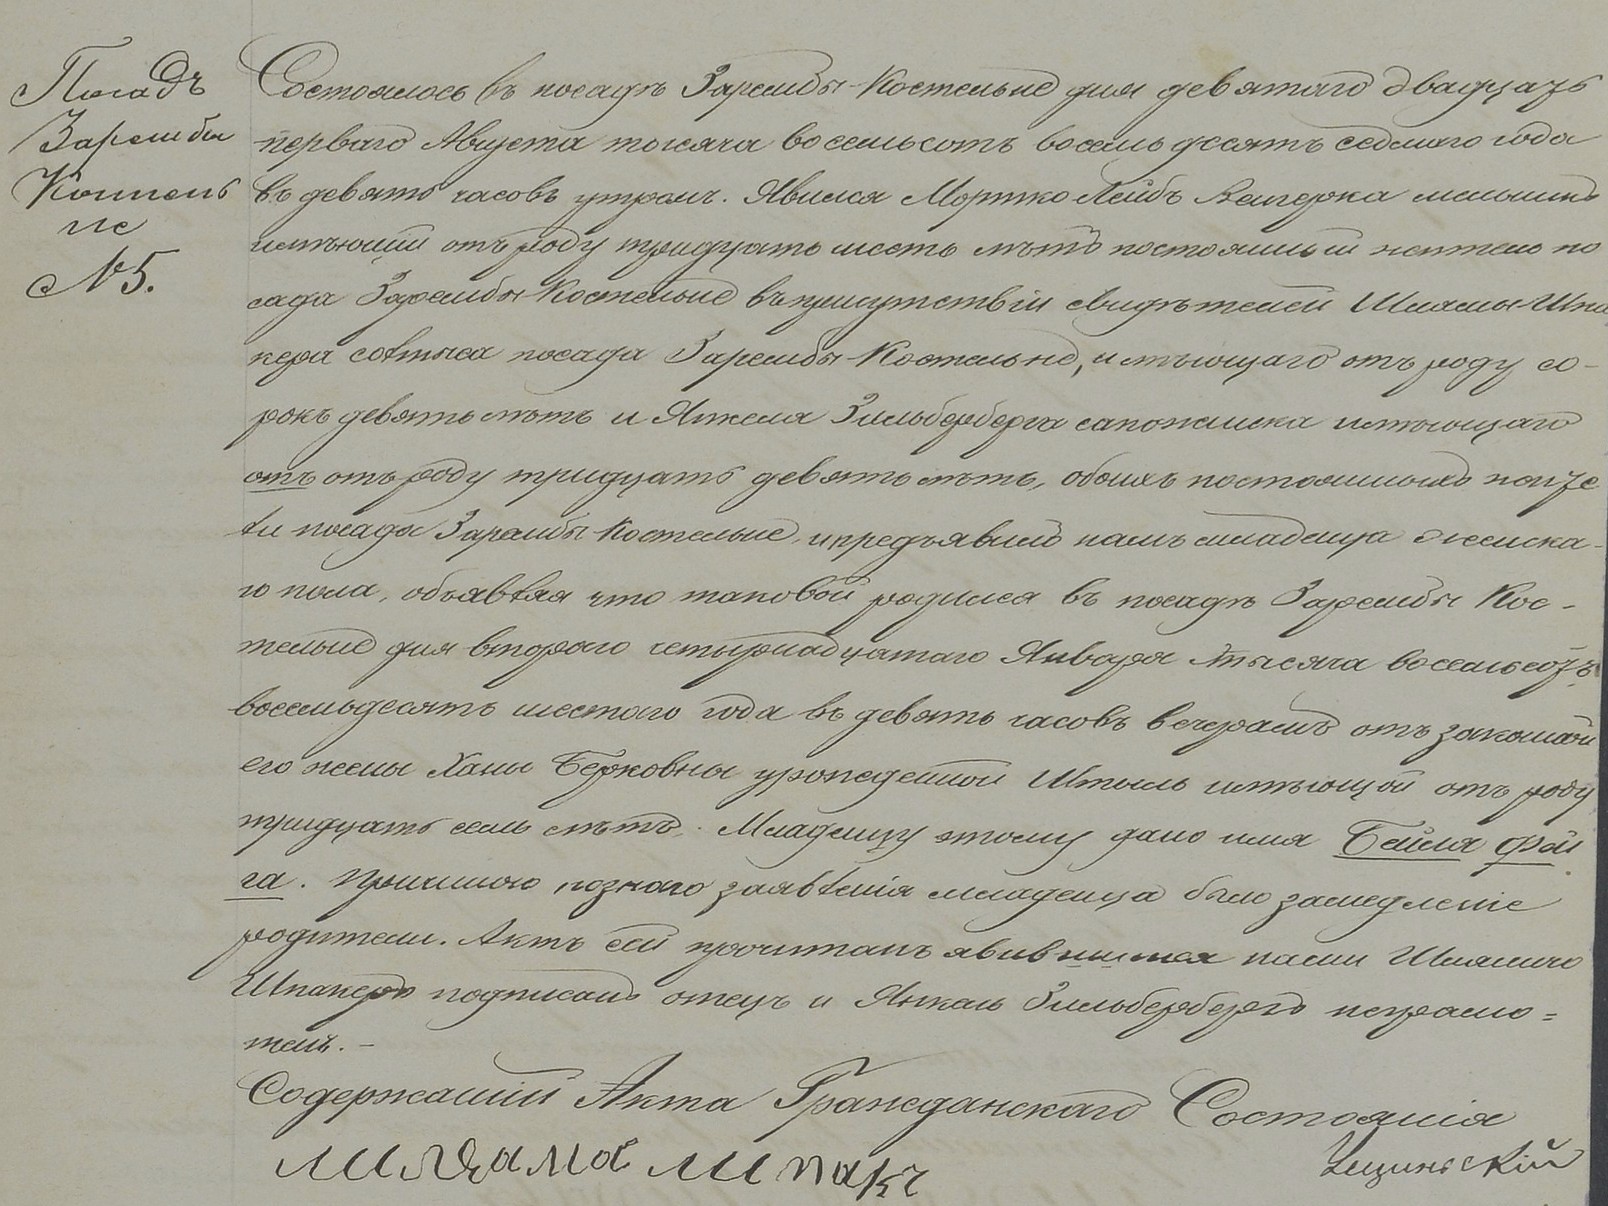 Посадъ
Зарембы
Костель
не
№ 5.
Состоялось въ посадѣ Зарембы-Костельне дня девятаго двадцать
перваго Августа тысяча восемьсотъ восемьдесятъ седмаго года
въ девять часовъ утромъ. Явился Мортко Лейбъ
имѣющій отъ роду тридцать шесть лѣтъ постоянный житель по
сада Зарембы Костельне въ присутствіи свидѣтелей Шлямы Шпа
кера солтыса посада Зарембы-Костельне, имѣющаго отъ роду со-
рокъ девять лѣтъ и Янкеля Зильберберга сапожника имѣющаго
отъ отъ роду тридцать девять лѣтъ, обоихъ постоянныхъ жите
ли посады Зарембы Костельне, и предъявилъ намъ младенца женска-
го пола, объявляя что таковой родился въ посадѣ Зарембы Кос-
тельне дня второго четырнадцатаго Января тысяча восемьсотъ
восемьдесятъ шестого года въ девять часовъ вечерамъ отъ законной
его жены Ханы Берковны урожденной Штыль имѣющой отъ роду
тридцать семь лѣтъ. Младенцу этому дано имя Бейля Фей
га. Причиною познаго заявленія младенца было замедленіе
родители. Актъ сей прочитанъ явившимся нами Шлямою
Шпакеръ подписанъ отецъ и Янкель Зильбербергъ неграмо=
тенъ. –
Содержащій Акта Гражданскаго Состоянія
Шляма Шпакъ